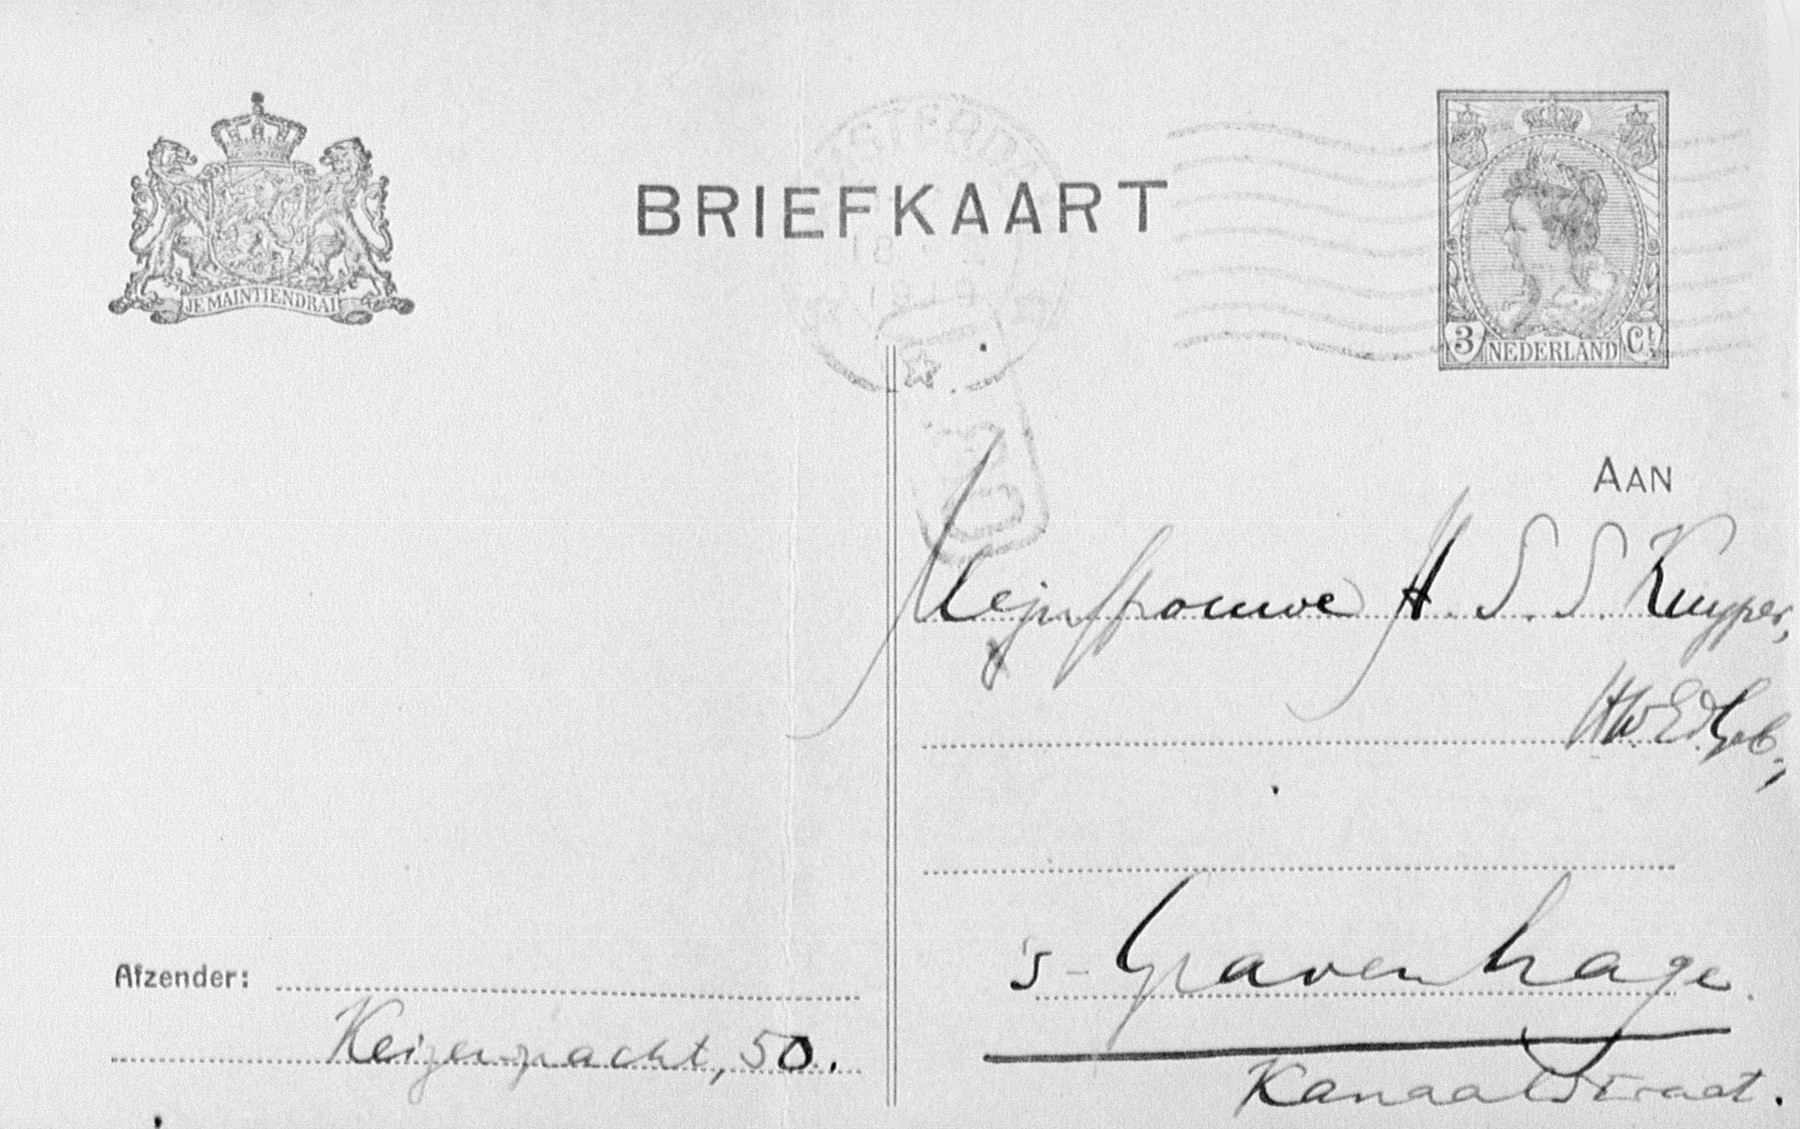 JE MAINTIENDRAI
BRIEFKAART
AMSTERDAM
18
3 Ct
NEDERLAND
AAN
Mejuffrouwe H. S. S. Kuyper,
HWEdGeb.,
's-Gravenhage.
Kanaalstraat.
Afzender:
Keizersgracht, 50.